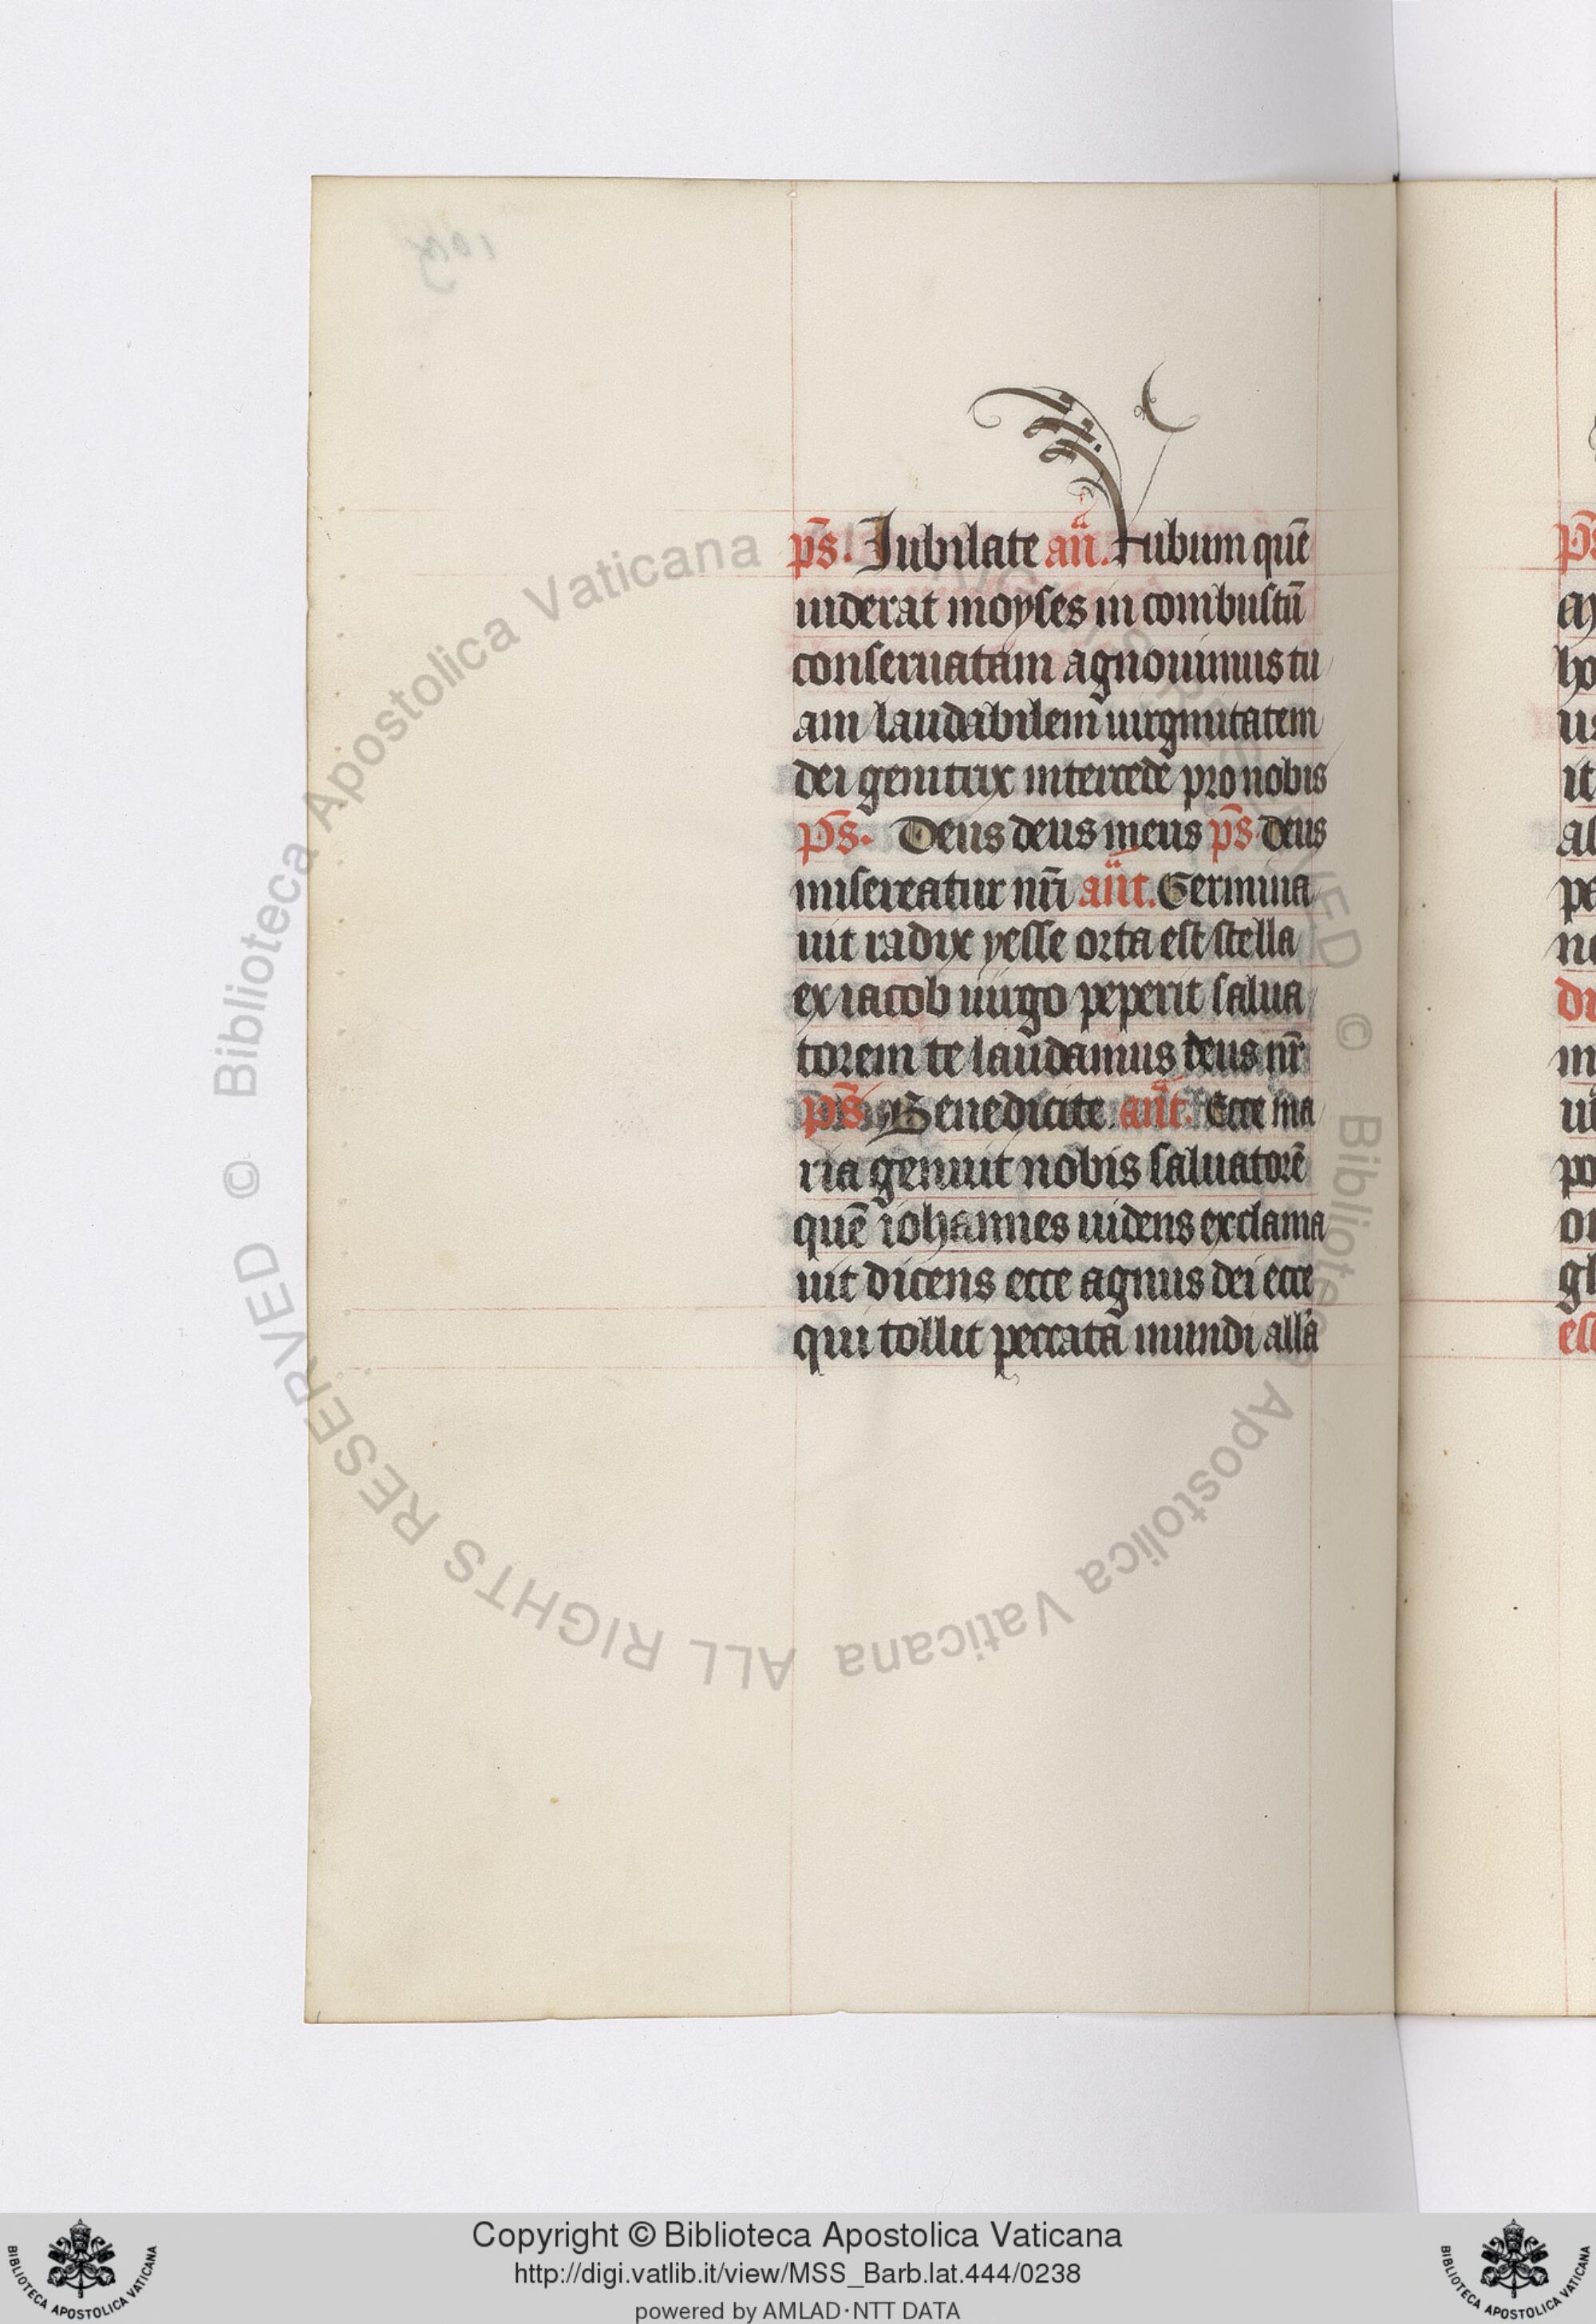 ps̄. Iubilate añ. Rubum quē
uiderat moyses in combustū
conseruatam agnouimus tu
am laudabilem uirginitatem
dei genitrix intercede pro nobis
ps̄. Deus deus meus ps̄ deus
misereatur nr̄i añt. Germina
uit radix yesse orta est stella
ex iacob uirgo peperit salua
torem te laudamus deus nr̄
ps̄ Benedicite añt. Ecce ma
ria genuit nobis saluatorē
quē iohannes uidens exclama
uit dicens ecce agnus dei ecce
qui tollit peccata mundi all'a
© Biblioteca Apostolica Vaticana ALL RIGHTS RESERVED
© Biblioteca Apostolica Vaticana ALL RIGHTS RESERVED
Copyright © Biblioteca Apostolica Vaticana
http://digi.vatlib.it/view/MSS_Barb.lat.444/0238
powered by AMLAD·NTT DATA
BIBLIOTECA APOSTOLICA VATICANA
BIBLIOTECA APOSTOLICA VATICANA